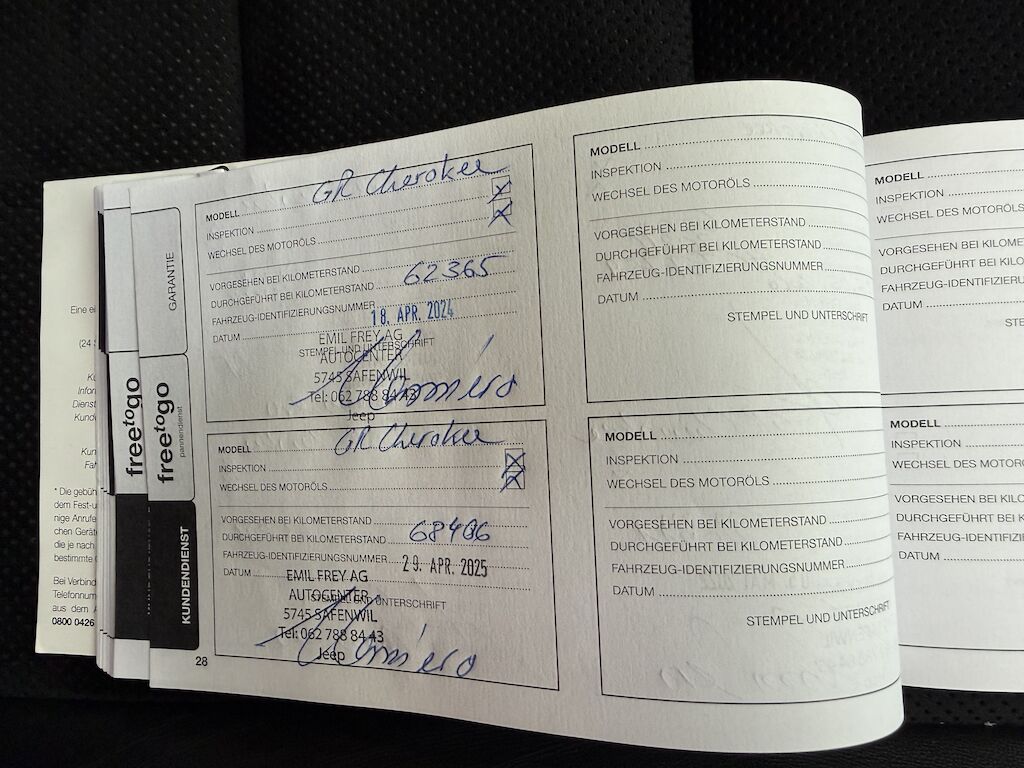 Eine ei
(24 S
Infor
Dienst
Kund
Kun
* Die gebüh
dem Fest-u
nige Anrufe
chen Geräte
die je nach
bestimmte
Bei Verbind
Telefonnum
aus dem A
0800 0426
GARANTIE
freetogo
freetogo
pannendienst
KUNDENDIENST
MODELL GR Cherokee
INSPEKTION X
WECHSEL DES MOTORÖLS X
VORGESEHEN BEI KILOMETERSTAND
DURCHGEFÜHRT BEI KILOMETERSTAND 62365
FAHRZEUG-IDENTIFIZIERUNGSNUMMER
DATUM 18. APR. 2024
STEMPEL UND UNTERSCHRIFT
EMIL FREY AG
AUTOCENTER
5745 SAFENWIL
Tel: 062 788 84 43
Jeep
MODELL GR Cherokee
INSPEKTION X
WECHSEL DES MOTORÖLS X
VORGESEHEN BEI KILOMETERSTAND
DURCHGEFÜHRT BEI KILOMETERSTAND 68486
FAHRZEUG-IDENTIFIZIERUNGSNUMMER
DATUM 29. APR. 2025
STEMPEL UND UNTERSCHRIFT
EMIL FREY AG
AUTOCENTER
5745 SAFENWIL
Tel: 062 788 84 43
Jeep
28
MODELL
INSPEKTION
WECHSEL DES MOTORÖLS
VORGESEHEN BEI KILOMETERSTAND
DURCHGEFÜHRT BEI KILOMETERSTAND
FAHRZEUG-IDENTIFIZIERUNGSNUMMER
DATUM
STEMPEL UND UNTERSCHRIFT
MODELL
INSPEKTION
WECHSEL DES MOTORÖLS
VORGESEHEN BEI KILOMETERSTAND
DURCHGEFÜHRT BEI KILOMETERSTAND
FAHRZEUG-IDENTIFIZIERUNGSNUMMER
DATUM
STEMPEL UND UNTERSCHRIFT
MODELL
INSPEKTION
WECHSEL DES MOTORÖLS
VORGESEHEN BEI KILOME
DURCHGEFÜHRT BEI KILO
FAHRZEUG-IDENTIFIZIERU
DATUM
STE
MODELL
INSPEKTION
WECHSEL DES MOTORÖ
VORGESEHEN BEI KILO
DURCHGEFÜHRT BEI KI
FAHRZEUG-IDENTIFIZIE
DATUM